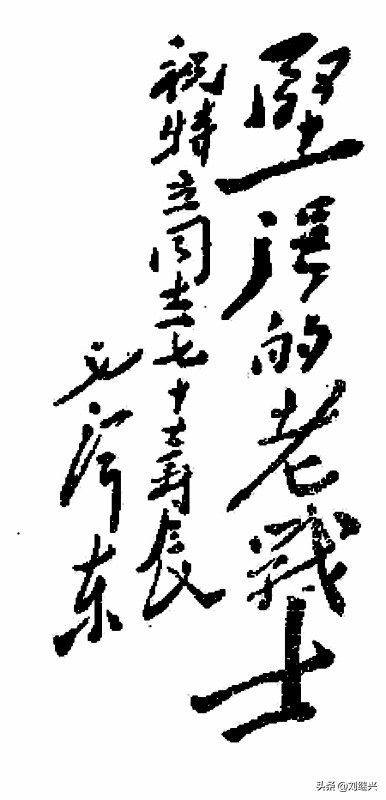 坚强的老战士
祝特立同志七十大寿辰
毛泽东
头条@刘继兴